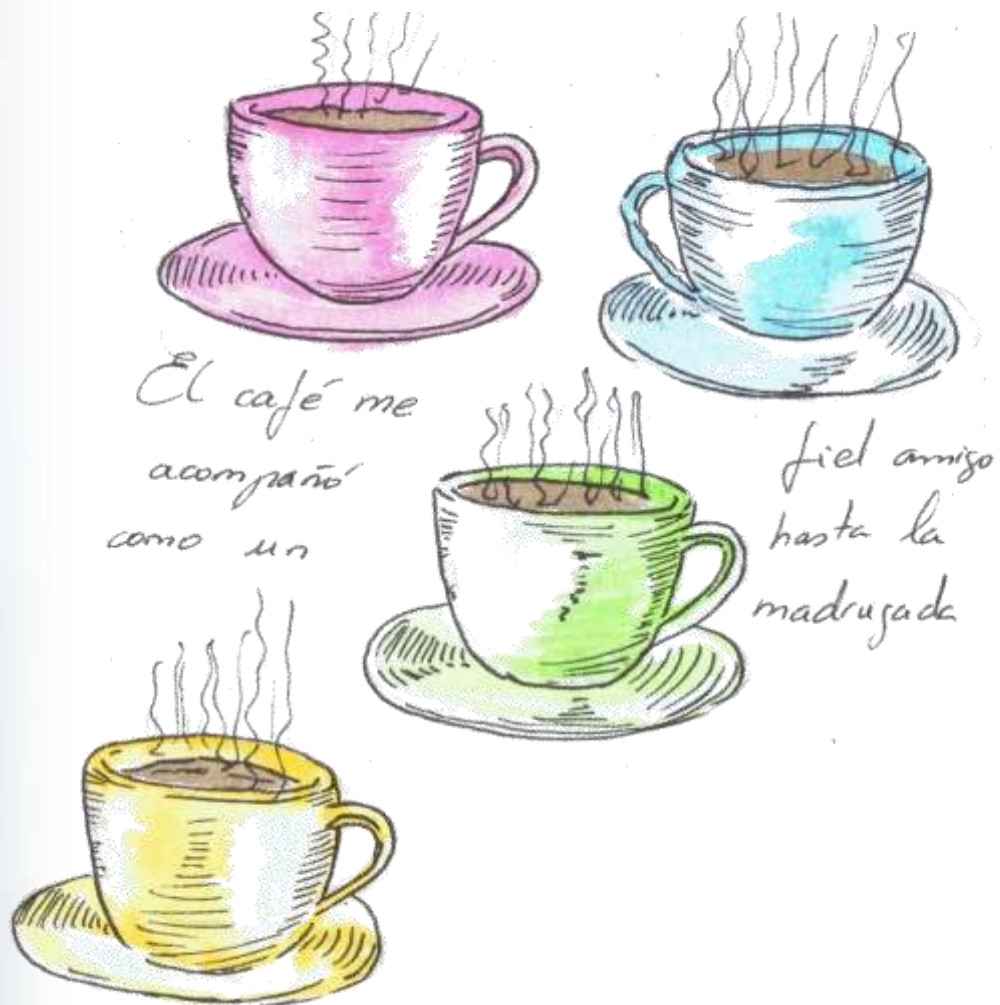 El café me
acompañó
como un
fiel amigo
hasta la
madrugada